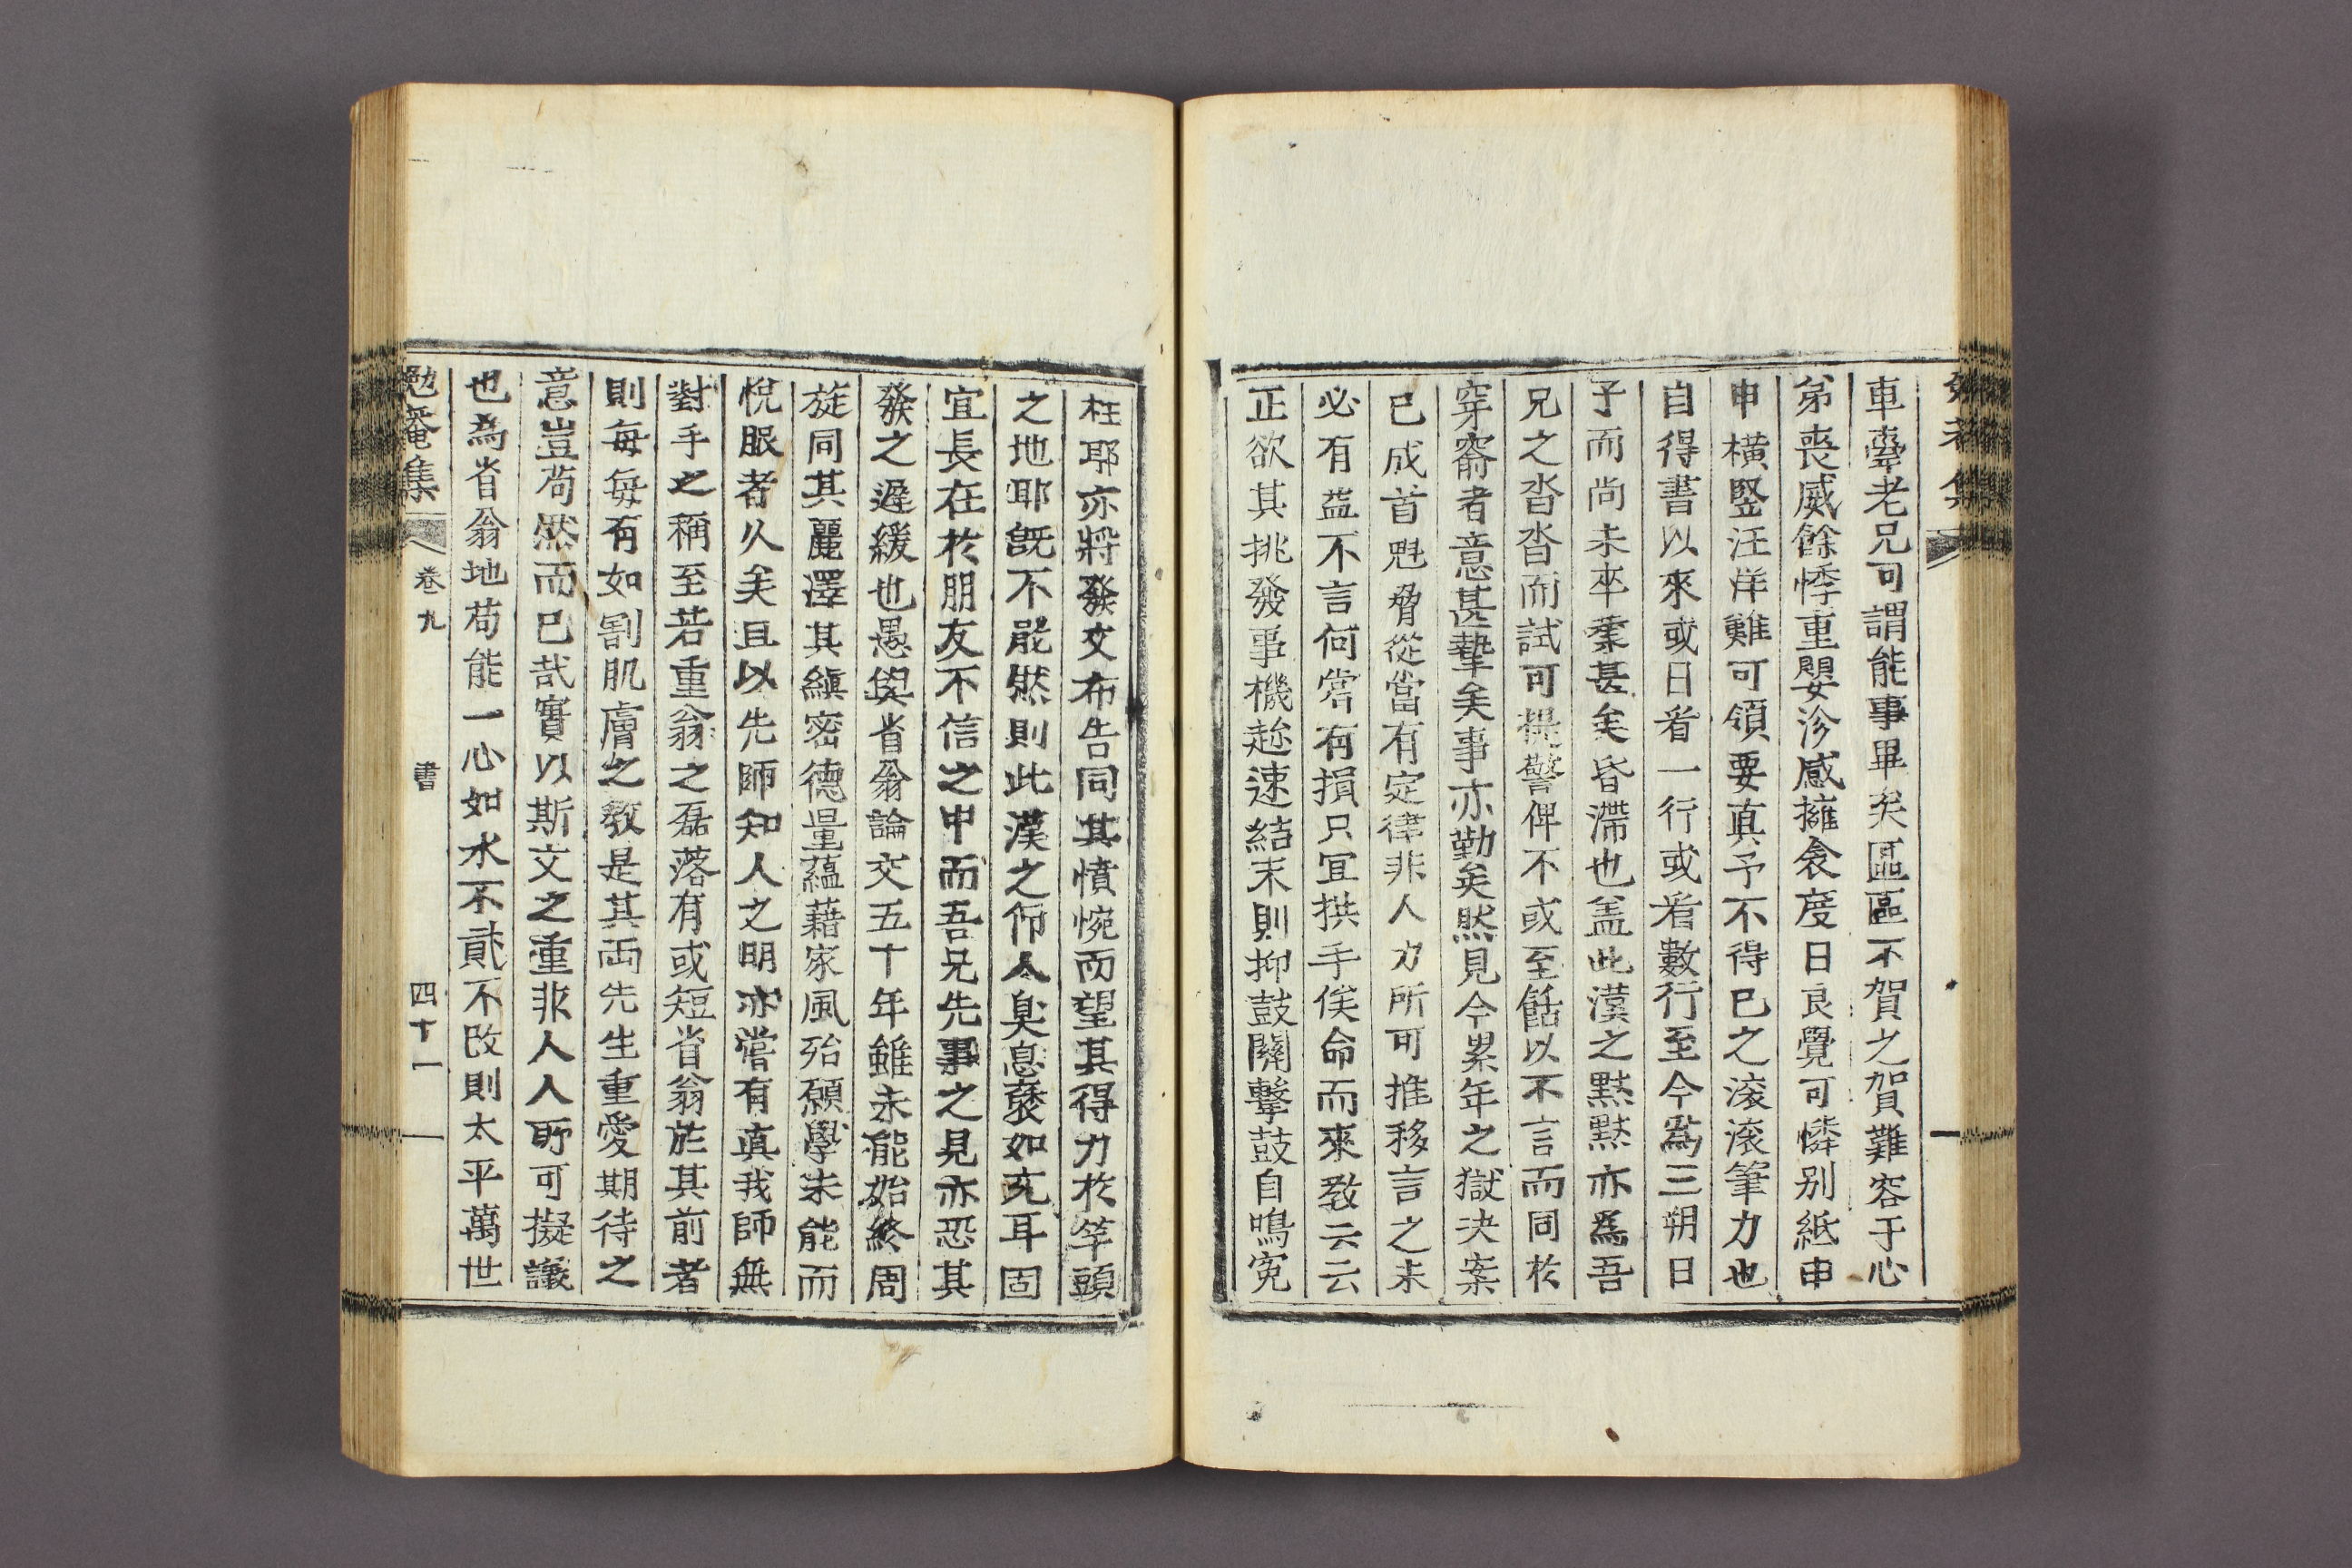 車牽老兄可謂能事畢矣區區不賀之賀難容于心
弟喪威餘悸重嬰沴感擁衾度日良覺可憐別紙申
申橫竪汪洋難可領要真予不得已之滚滚筆力也
自得書以來或日看一行或看數行至今爲三朔日
子而尚未卒業甚矣昏滯也盖此漢之黙黙亦爲吾
兄之沓沓而試可提警俾不或至餂以不言而同於
穿窬者意甚摯矣事亦勤矣然見今累年之獄决案
已成首魁脅從當有定律非人力所可推移言之未
必有益不言何嘗有損只冝拱手俟命而來敎云云
正欲其挑發事機趂速結末則抑鼓閧擊鼓自鳴寃
枉耶亦將發文布告同其憤惋而望其得力於竿頭
之地耶旣不能然則此漢之佈人臭息褎如充耳固
宜長在於朋友不信之中而吾兄先事之見亦恐其
發之遲緩也愚與省翁論交五十年雖未能始終周
旋同其麗澤其縝密德量蘊藉家風殆願學未能而
悅服者久矣且以先師知人之明亦嘗有真我師無
對手之稱至若重翁之磊落有或短省翁於其前者
則每每有如割肌膚之敎是其両先生重愛期待之
意豈苟然而已哉實以斯文之重非人人所可擬議
也為省翁地苟能一心如水不貳不改則太平萬世
勉菴集 卷九 書 四十一